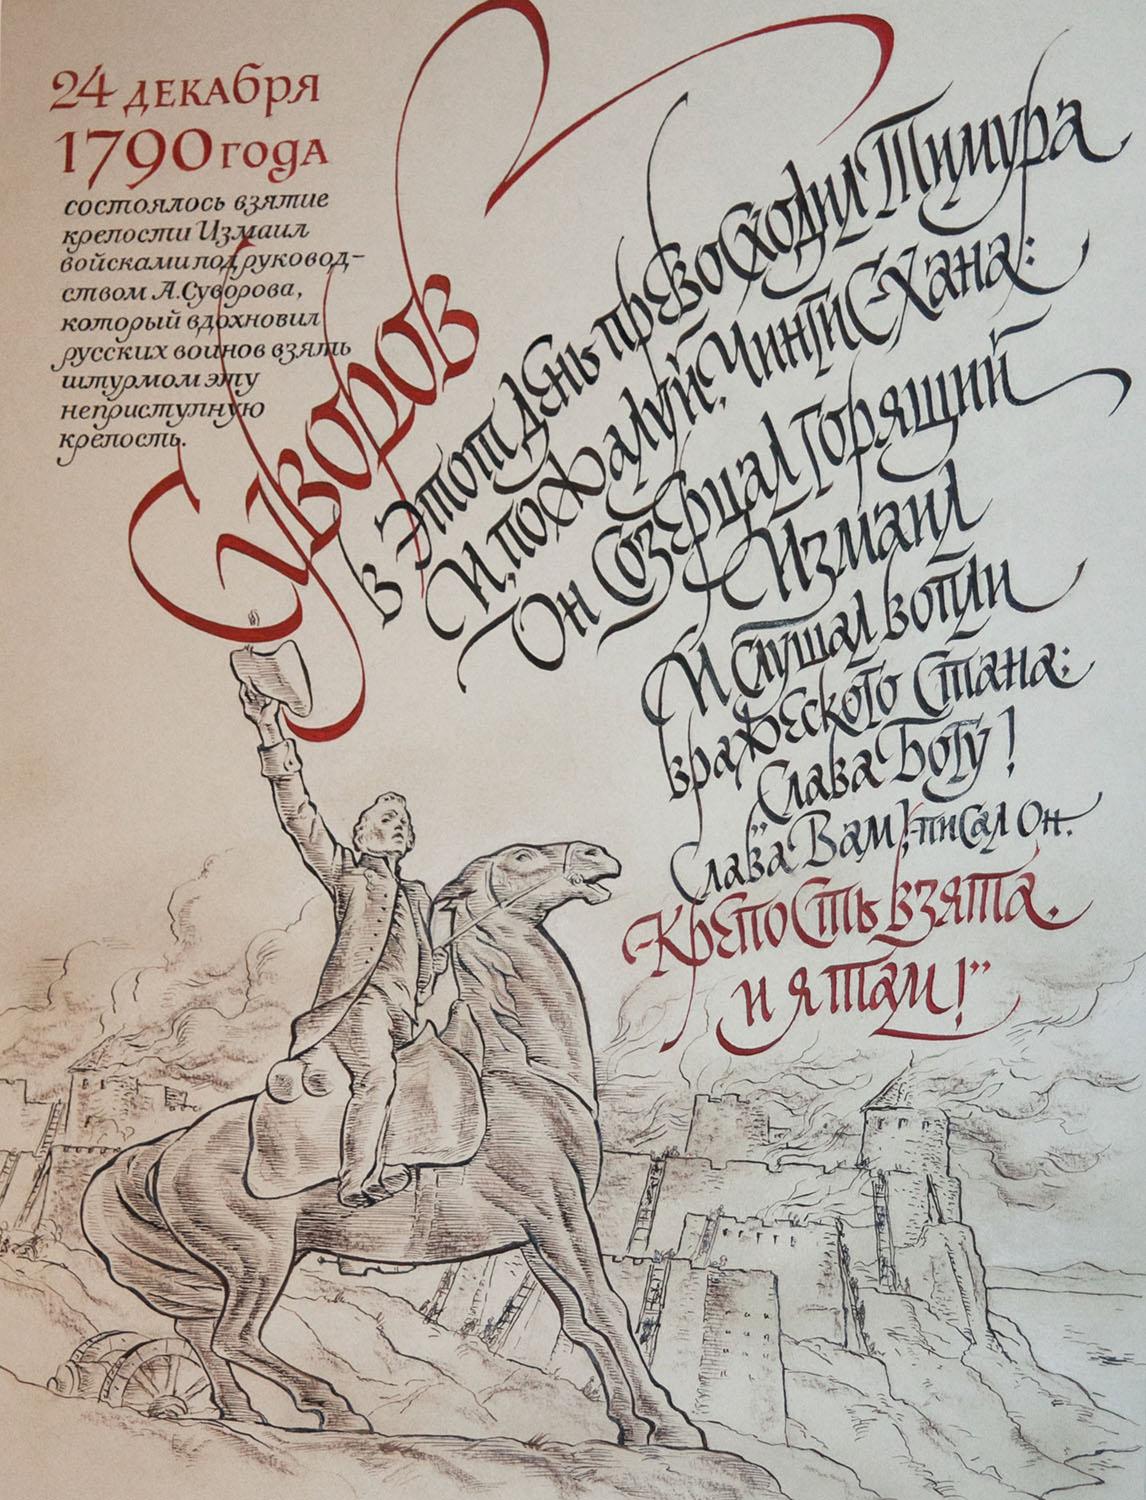 24 декабря
1790 года
состоялось взятие
крепости Измаил
войсками под руковод-
ством А.Суворова,
который вдохновил
русских воинов взять
штурмом эту
неприступную
крепость.
Суворов
в этот день превосходил Тимура
И, пожалуй, Чингис-Хана:
Он созерцал горящий
Измаил
И слушал вопли
вражеского стана:
"Слава Богу!
Слава Вам!,-писал Он.
-Крепость взята,
и я там!"